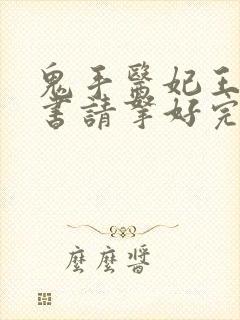 鬼手醫妃王
書請拏好完
麼麼醬